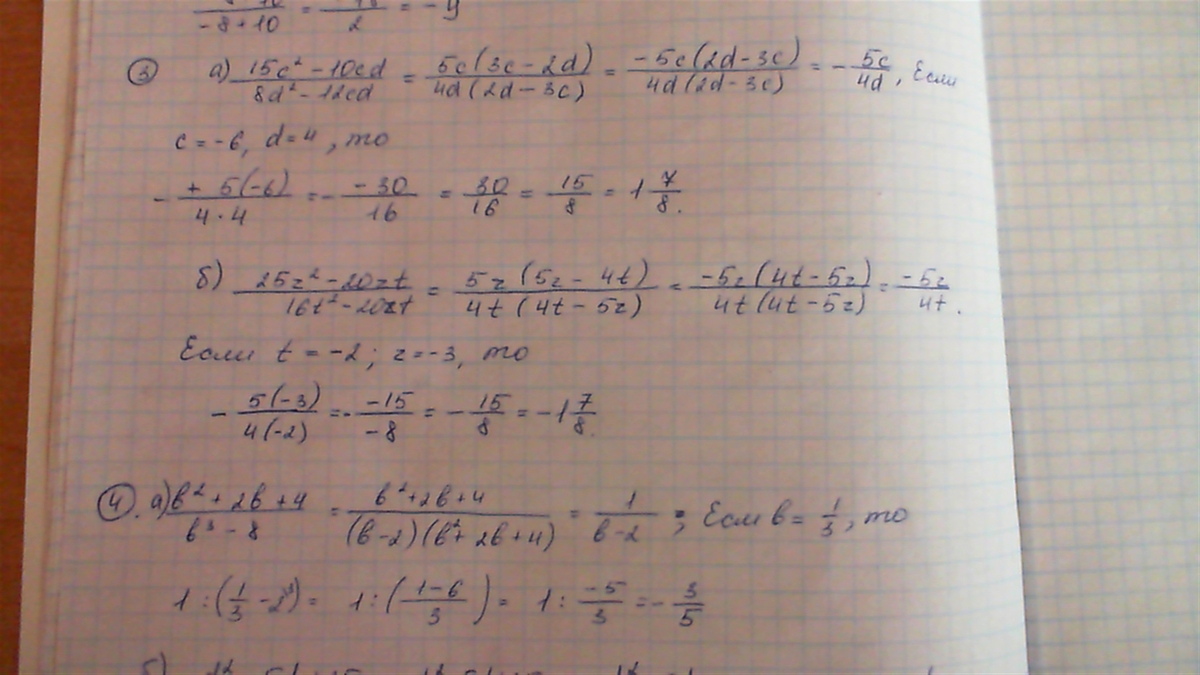 /(-8+10) = /2 = -9
③ а) (15c² - 10cd)/(8d² - 12cd) = 5c(3c - 2d)/4d(2d - 3c) = -5c(2d - 3c)/4d(2d - 3c) = - 5c/4d, Если
c = -6, d = 4, то
- (+ 5(-6))/(4·4) = - (-30)/16 = 30/16 = 15/8 = 1 7/8.
б) (25z² - 20zt)/(16t² - 20zt) = 5z(5z - 4t)/4t(4t - 5z) = -5z(4t - 5z)/4t(4t - 5z) = -5z/4t.
Если t = -2; z = -3, то
- 5(-3)/4(-2) = - (-15)/(-8) = - 15/8 = -1 7/8.
④. а) (b² + 2b + 4)/(b³ - 8) = (b² + 2b + 4)/(b - 2)(b² + 2b + 4) = 1/(b - 2); Если b = 1/3, то
1 : (1/3 - 2) = 1 : ((1 - 6)/3) = 1 : (-5)/3 = - 3/5
б)